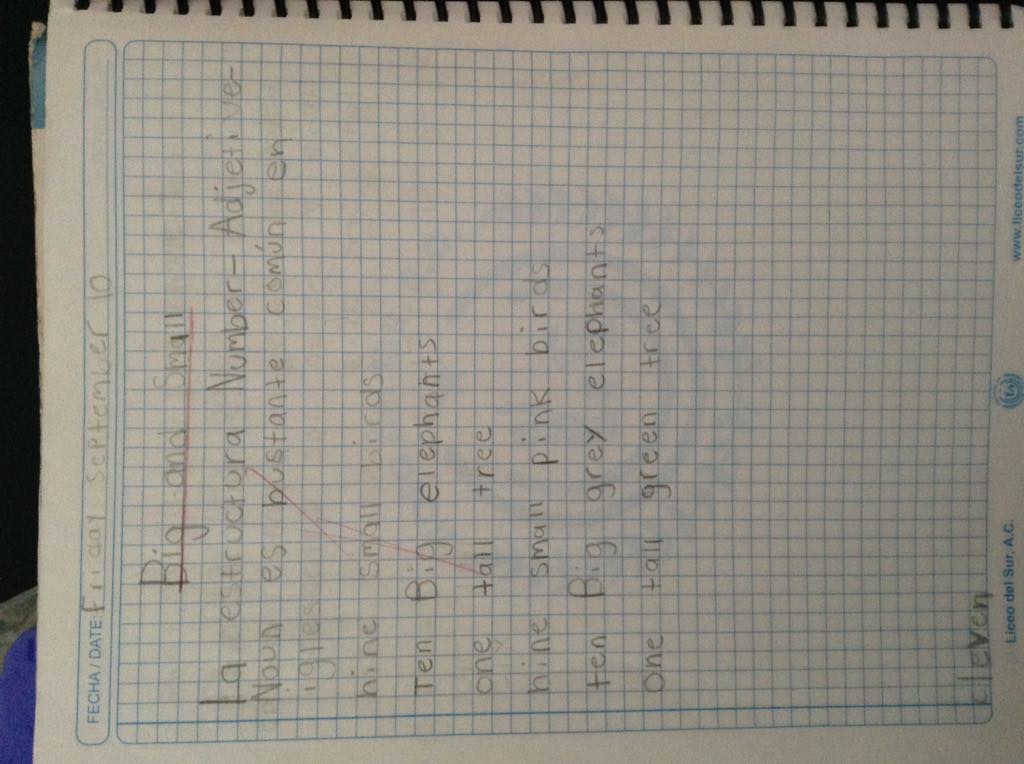 FECHA / DATE: Friday september 10
Big and Small
La estructura Number- Adjective-
Noun es bustante común en
igles
nine small birds
Ten Big elephants
one tall tree
nine small pink birds
ten Big grey elephants
one tall green tree
eleven
Liceo del Sur, A.C.
www.liceodelsur.com